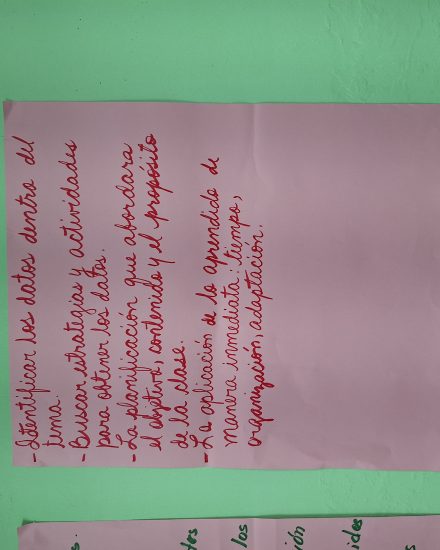 - Identificar los datos dentro del
tema.
- Buscar estrategias y actividades
para obtener los datos.
- La planificación que abordara
el objetivo, contenido y el propósito
de la clase.
- La aplicación de lo aprendido de
manera inmediata: tiempo,
organización, adaptación.
los
ión